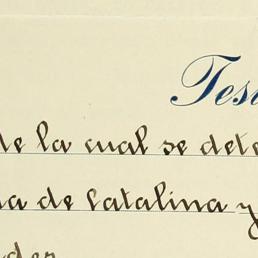 Tes
de la cual se dete
a de Catalina y